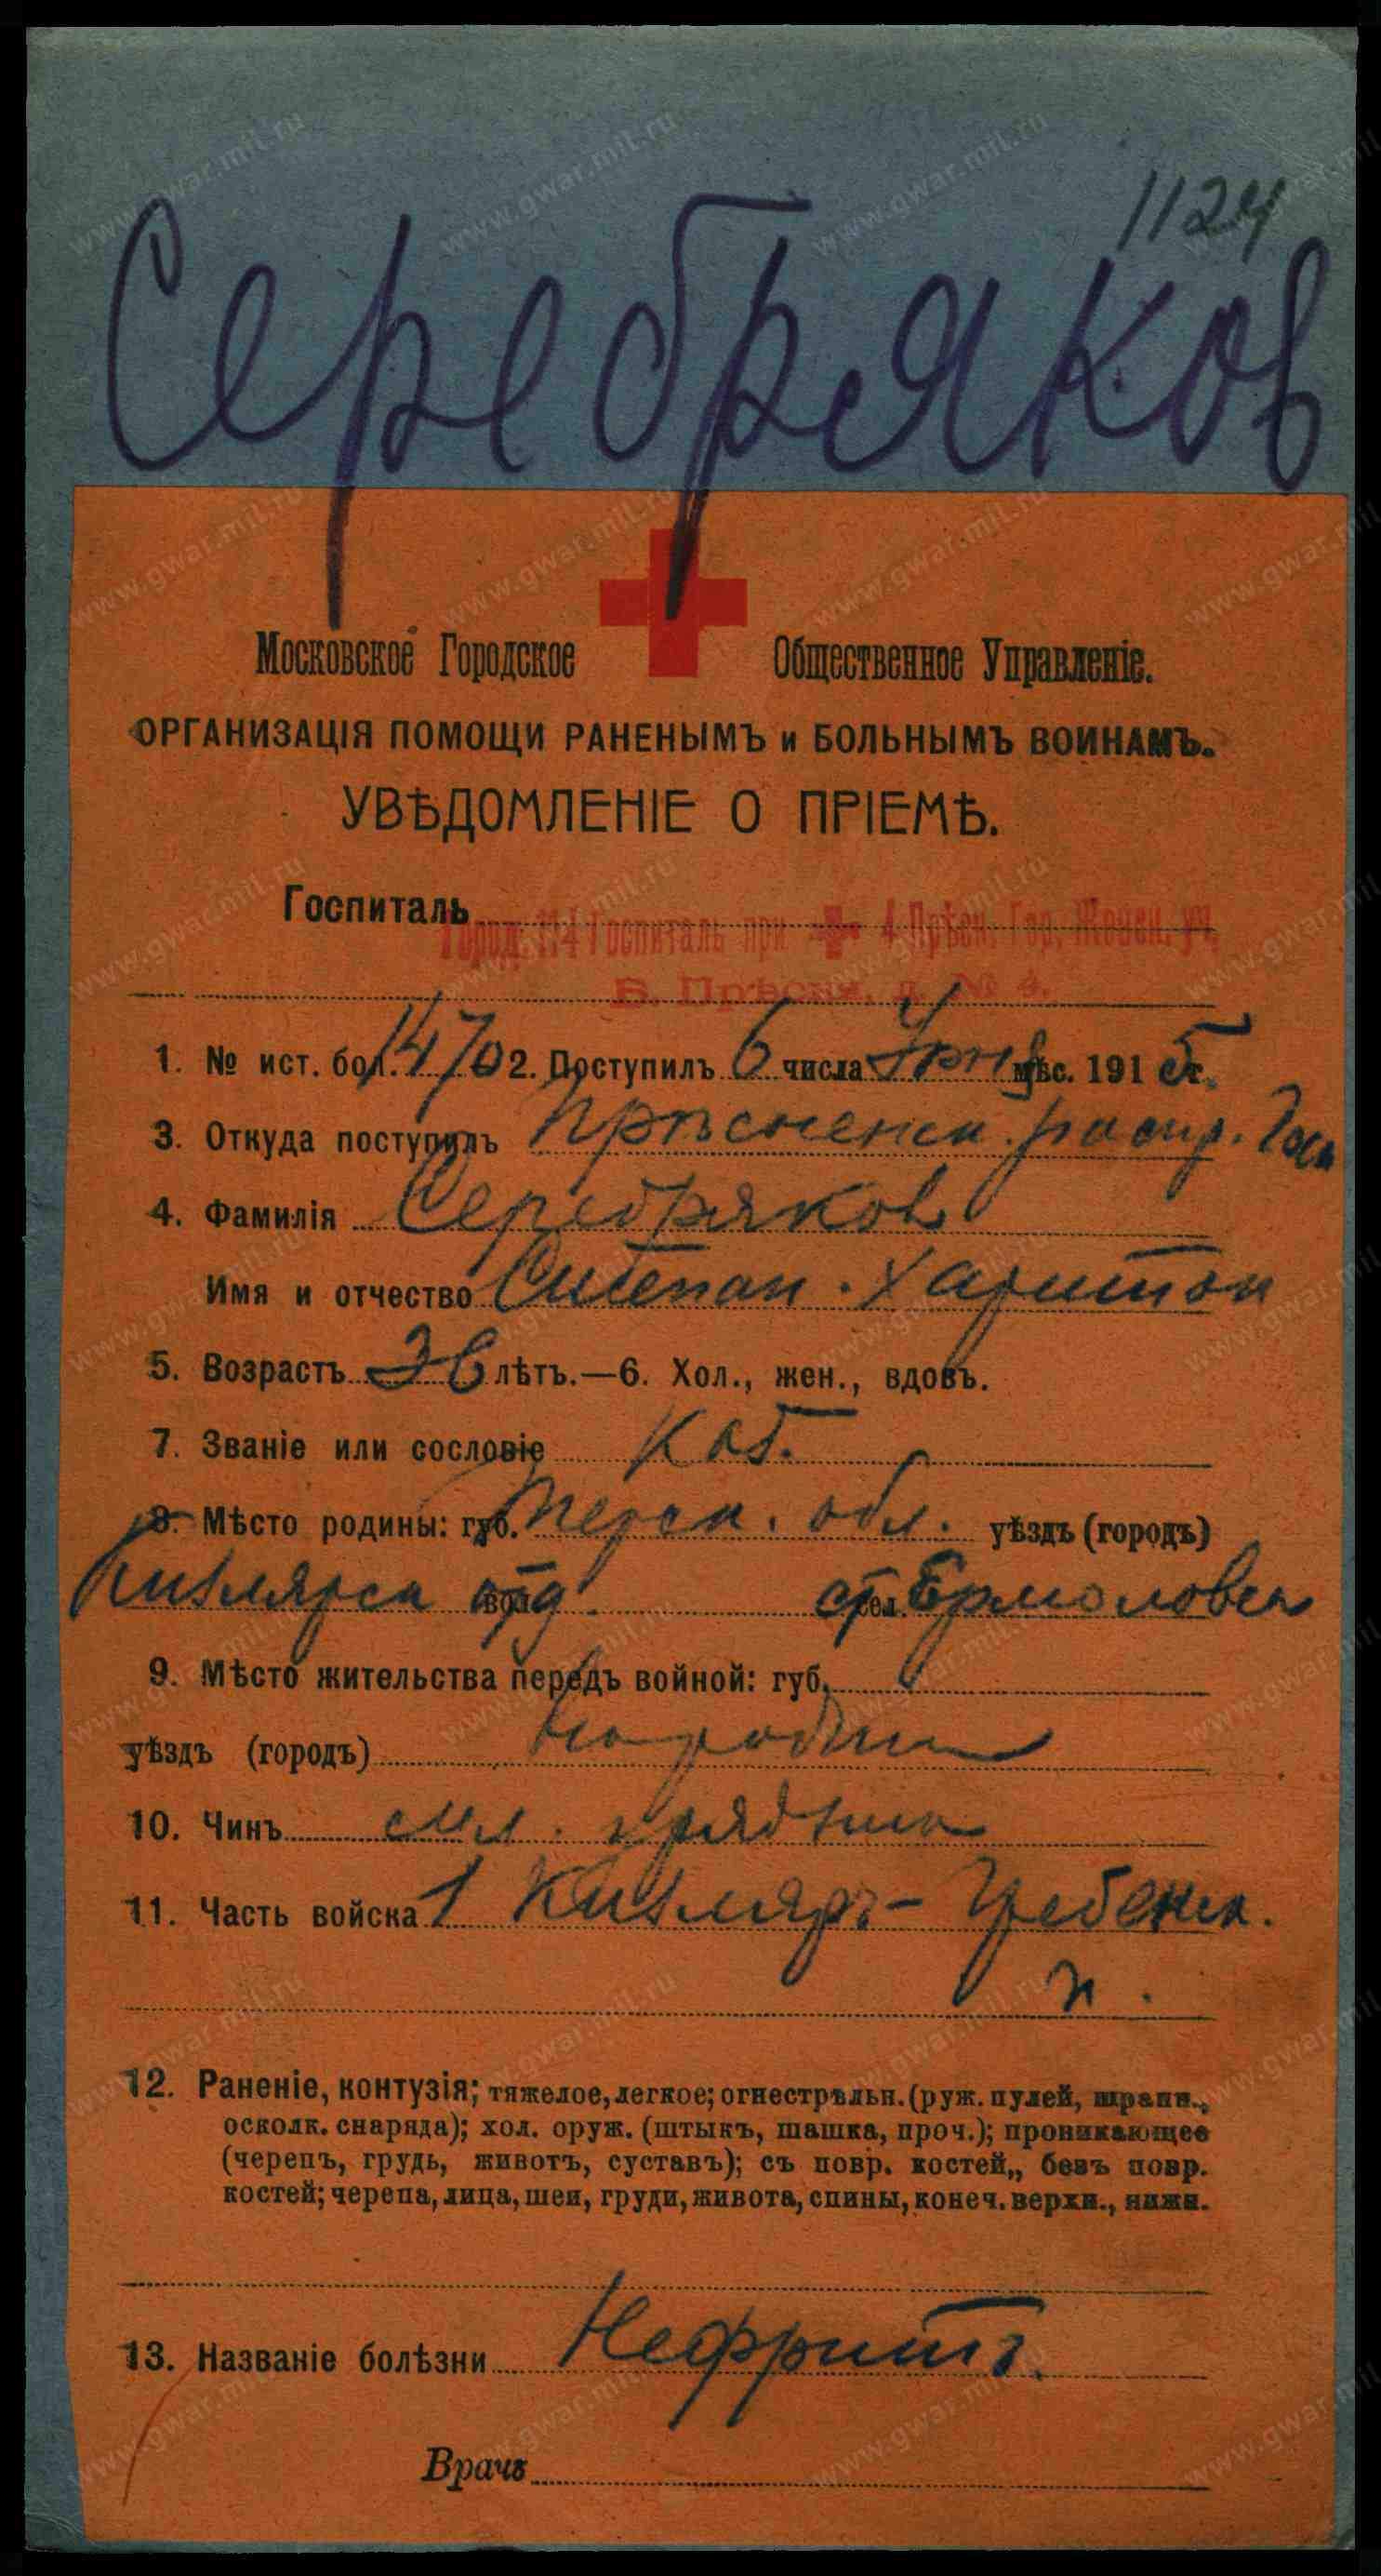 1124
Серебряков
Московское Городское Общественное Управленіе.
ОРГАНИЗАЦІЯ ПОМОЩИ РАНЕНЫМЪ и БОЛЬНЫМЪ ВОИНАМЪ.
УВѢДОМЛЕНІЕ О ПРІЕМѢ.
Госпиталь
Город. 1141 Госпиталь при 4 Прѣсн. Гор. Женск. уч.
Б. Прѣсня, д. № 4.
1. № ист. бол. 1470 2. Поступилъ 6 числа мѣс. 1915 г.
3. Откуда поступилъ Прѣсненск. распр. Госп
4. Фамилія Серебряков
Имя и отчество Степан. Харитон
5. Возрастъ 36 лѣтъ.—6. Хол., жен., вдовъ.
7. Званіе или сословіе Каз.
8. Мѣсто родины: губ. Терск. обл. уѣздъ (городъ)
Кизлярск отд вол. ст. сел. Ермоловск
9. Мѣсто жительства передъ войной: губ.
уѣздъ (городъ) на родин
10. Чинъ мл. урядник
11. Часть войска 1 Кизляро-Гребенск.
п.
12. Раненіе, контузія; тяжелое, легкое; огнестрѣльн. (руж. пулей, шрапн.,
осколк. снаряда); хол. оруж. (штыкъ, шашка, проч.); проникающее
(черепъ, грудь, животъ, суставъ); съ повр. костей,, безъ повр.
костей; черепа, лица, шеи, груди, живота, спины, конеч. верхн., нижн.
13. Названіе болѣзни Нефритъ.
Врачъ